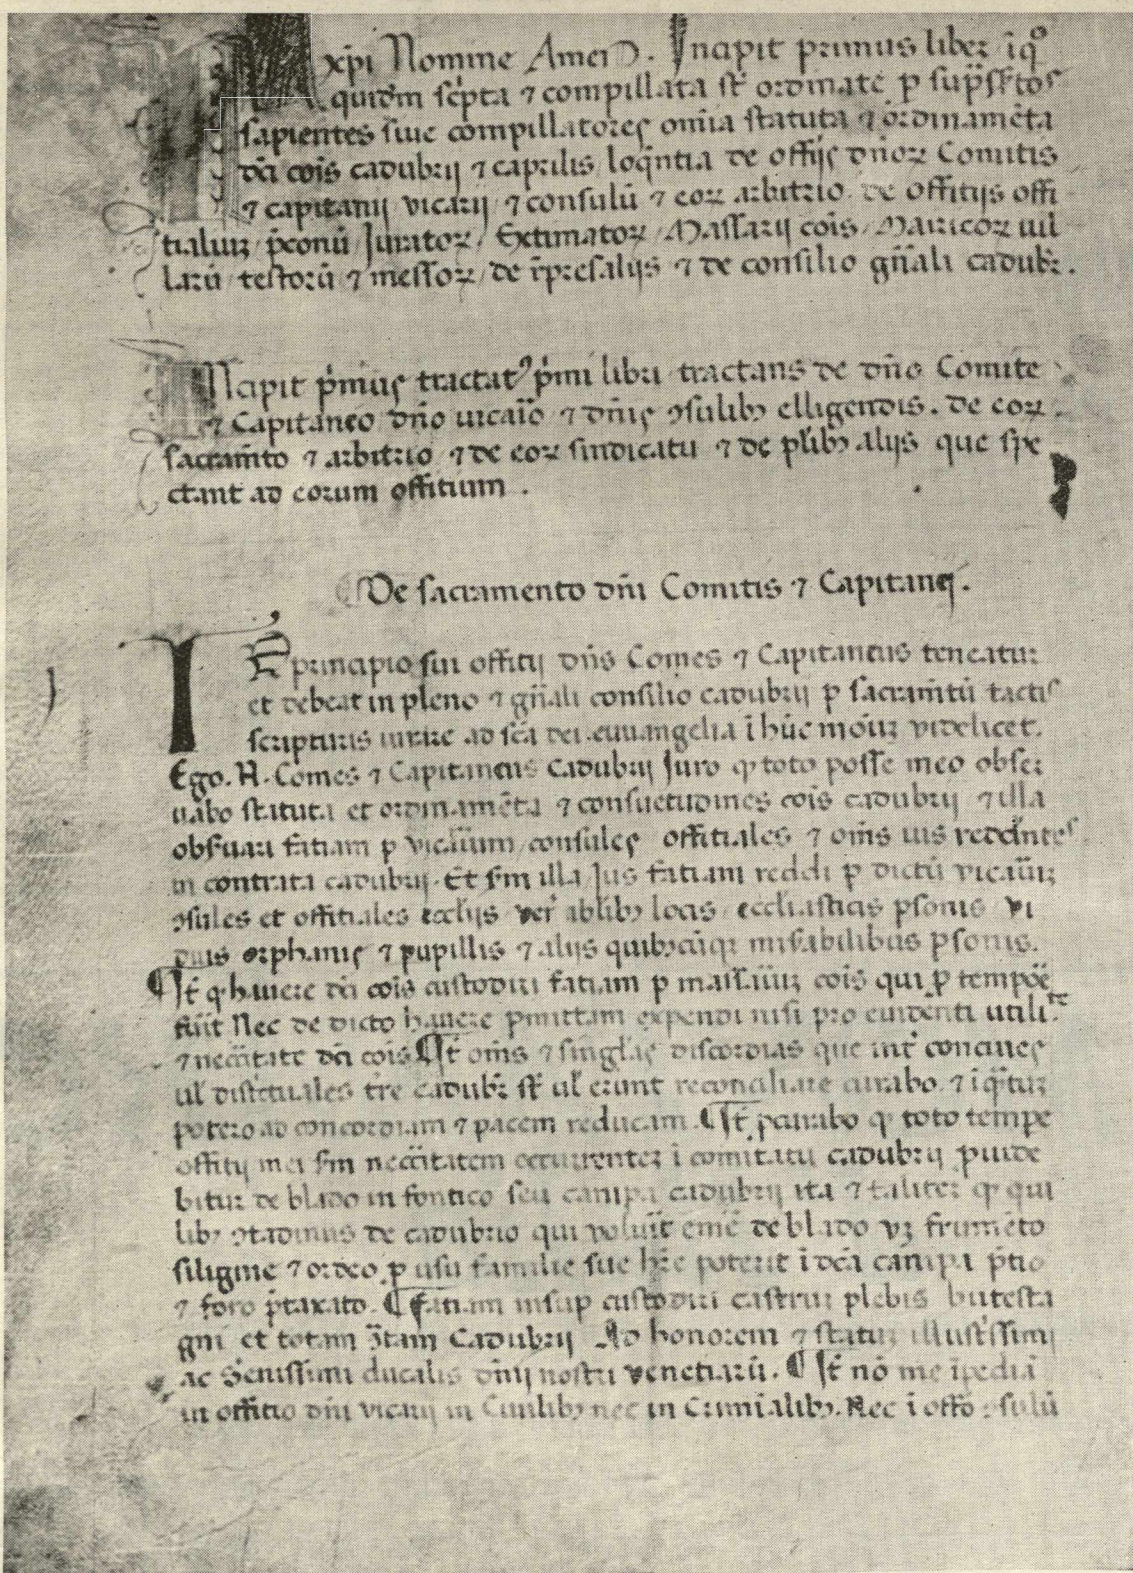 xp̄i Nomine Amen. Incipit primus liber ī qº
quidm sc̄pta ⁊ compillata sт̄ ordinate p sup̄sc̄ptos
sapientes siue compillatores om̄ia statuta ⁊ ordinamēta
dc̄i cōis cadubrij ⁊ caprilis loq̄ntia de offijs dn̄oꝝ Comitis
⁊ capitanij vicarij ⁊ consulū ⁊ eoꝝ arbitrio de offitijs offi
tialium p̄conū Iuratoꝝ Extimatoꝝ Massarij cōis Maricoꝝ uil
larū testorū ⁊ messoꝝ de rēpresalijs ⁊ de consilio gn̄ali cadubr̄.
Incipit p̄mus tractatꝰ p̄mi libri tractans de dn̄o Comite
⁊ Capitaneo dn̄o uicaīo ⁊ dn̄is ꝯsulibꝫ elligendis. de eoꝝ
sacram̄to ⁊ arbitrio ⁊ de eoꝝ sindicatu ⁊ de pl̄ibꝫ alijs que spe
ctant ad eorum offitium.
De sacramento dn̄i Comitis ⁊ Capitanej.
In principio sui offitij dn̄s Comes ⁊ Capitaneus teneatur
et debeat in pleno ⁊ gn̄ali consilio cadubrij p sacram̄tū tactis
scripturis iurare ad sc̄a dei euuangelia ī hūc modū videlicet.
Ego. N. Comes ⁊ Capitaneus Cadubrij Iuro ꝙ toto posse meo obser
uabo statuta et ordinamēta ⁊ consuetudines cōis cadubrij ⁊ illa
obs̄uari fatiam p vicaīum consules offitiales ⁊ om̄s ius reddēntes
in contrata cadubrij. Et sm̄ illa Ius fatiam reddi p dictū vicaīum
ꝯsules et offitiales eccl̄ijs ven̄ablibꝫ locis eccl̄iasticis psonis vi
duis orphanis ⁊ pupillis ⁊ alijs quibꝫcūqꝫ mis̄abilibus psonis.
¶ It̄ ꝙ hauere dc̄i cōis custodiri fatiam p massaīum cōis qui p tempoē
fūit Nec de dicto hauere pmittam expendi nisi pro euidenti utili.te
⁊ necc̄itate dc̄i cōis ¶ It̄ om̄s ⁊ singl̄as discordias que int̄ conciues
ul̄ dist̄ctuales tr̄e cadubr̄ st̄ ul̄ erunt reconciliare curabo ⁊ īqᵃtum
potero ad concordiam ⁊ pacem reducam. ¶ It̄ p̄curabo ꝙ toto tempe
offitij mei sm̄ necc̄itatem occurrentez ī comitatu cadubrij p̄uide
bitur de blado in fontico seu canipa cadubrij ita ⁊ taliter ꝙ qui
libꝫ ꝯtadinus de cadubrio qui voluīt emē de blado vꝫ frumēto
siligine ⁊ ordeo p usu familie sue hr̄e poterit ī dc̄a canipa p̄tio
⁊ foro p̄taxato. ¶ fatiam insup custodiri castrum plebis butesta
gni et totam ꝯtᵃtam Cadubrij Ad honorem ⁊ statum illust̄ssimi
ac S̄enissimi ducalis dn̄ij nostri venetiarū. ¶ It̄ nō me īpediā
in offitio dn̄i vicarij in Ciuilibꝫ nec in Crimīalibꝫ. Nec ī offō ꝯsulū